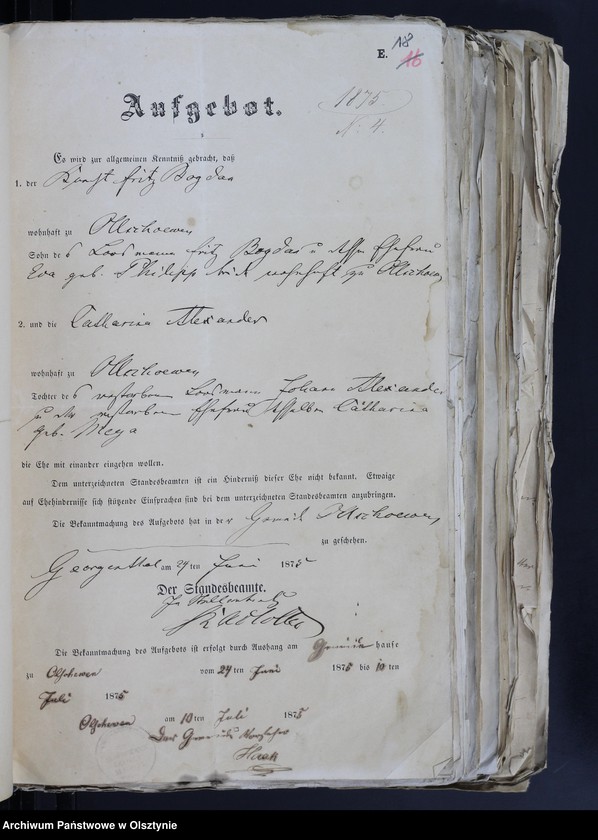 E. 18
16
Aufgebot.
1875.
N. 4.
Es wird zur allgemeinen Kenntniß gebracht, daß
1. der Knecht Fritz Bogdan
wohnhaft zu Olschoewen
Sohn des Losmann Fritz Bogdan u. Ehefrau
Eva geb. Philipp wohnhaft zu Olschoewen
2. und die Catharina Alexander
wohnhaft zu Olschoewen
Tochter des verstorbenen Losmann Johann Alexander
u. der verstorbenen Ehefrau desselben Catharina
geb. Meya
die Ehe mit einander eingehen wollen.
Dem unterzeichneten Standesbeamten ist ein Hinderniß dieser Ehe nicht bekannt. Etwaige
auf Ehehindernisse sich stützende Einsprachen sind bei dem unterzeichneten Standesbeamten anzubringen.
Die Bekanntmachung des Aufgebots hat in der Gemeinde Olschoewen
zu geschehen.
Georgenthal am 24 ten Juni 1875
Der Standesbeamte.
In Stellvertretung
Die Bekanntmachung des Aufgebots ist erfolgt durch Aushang am Gemeinde hause
zu Olschewen vom 24 ten Juni 1875 bis 10 ten
Juli 1875
Olschewen am 10 ten Juli 1875
Der Gemeinde Vorsteher
Archiwum Państwowe w Olsztynie